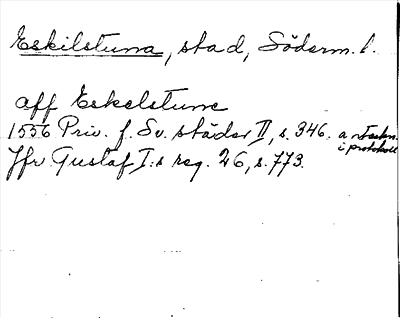 Eskilstuna, stad, Söderm. l.
aff Eskelstune
1556 Priv. f. Sv. städer II, s. 346. anteckn. i protokoll
Jfr Gustaf I:s reg. 26, s. 773.